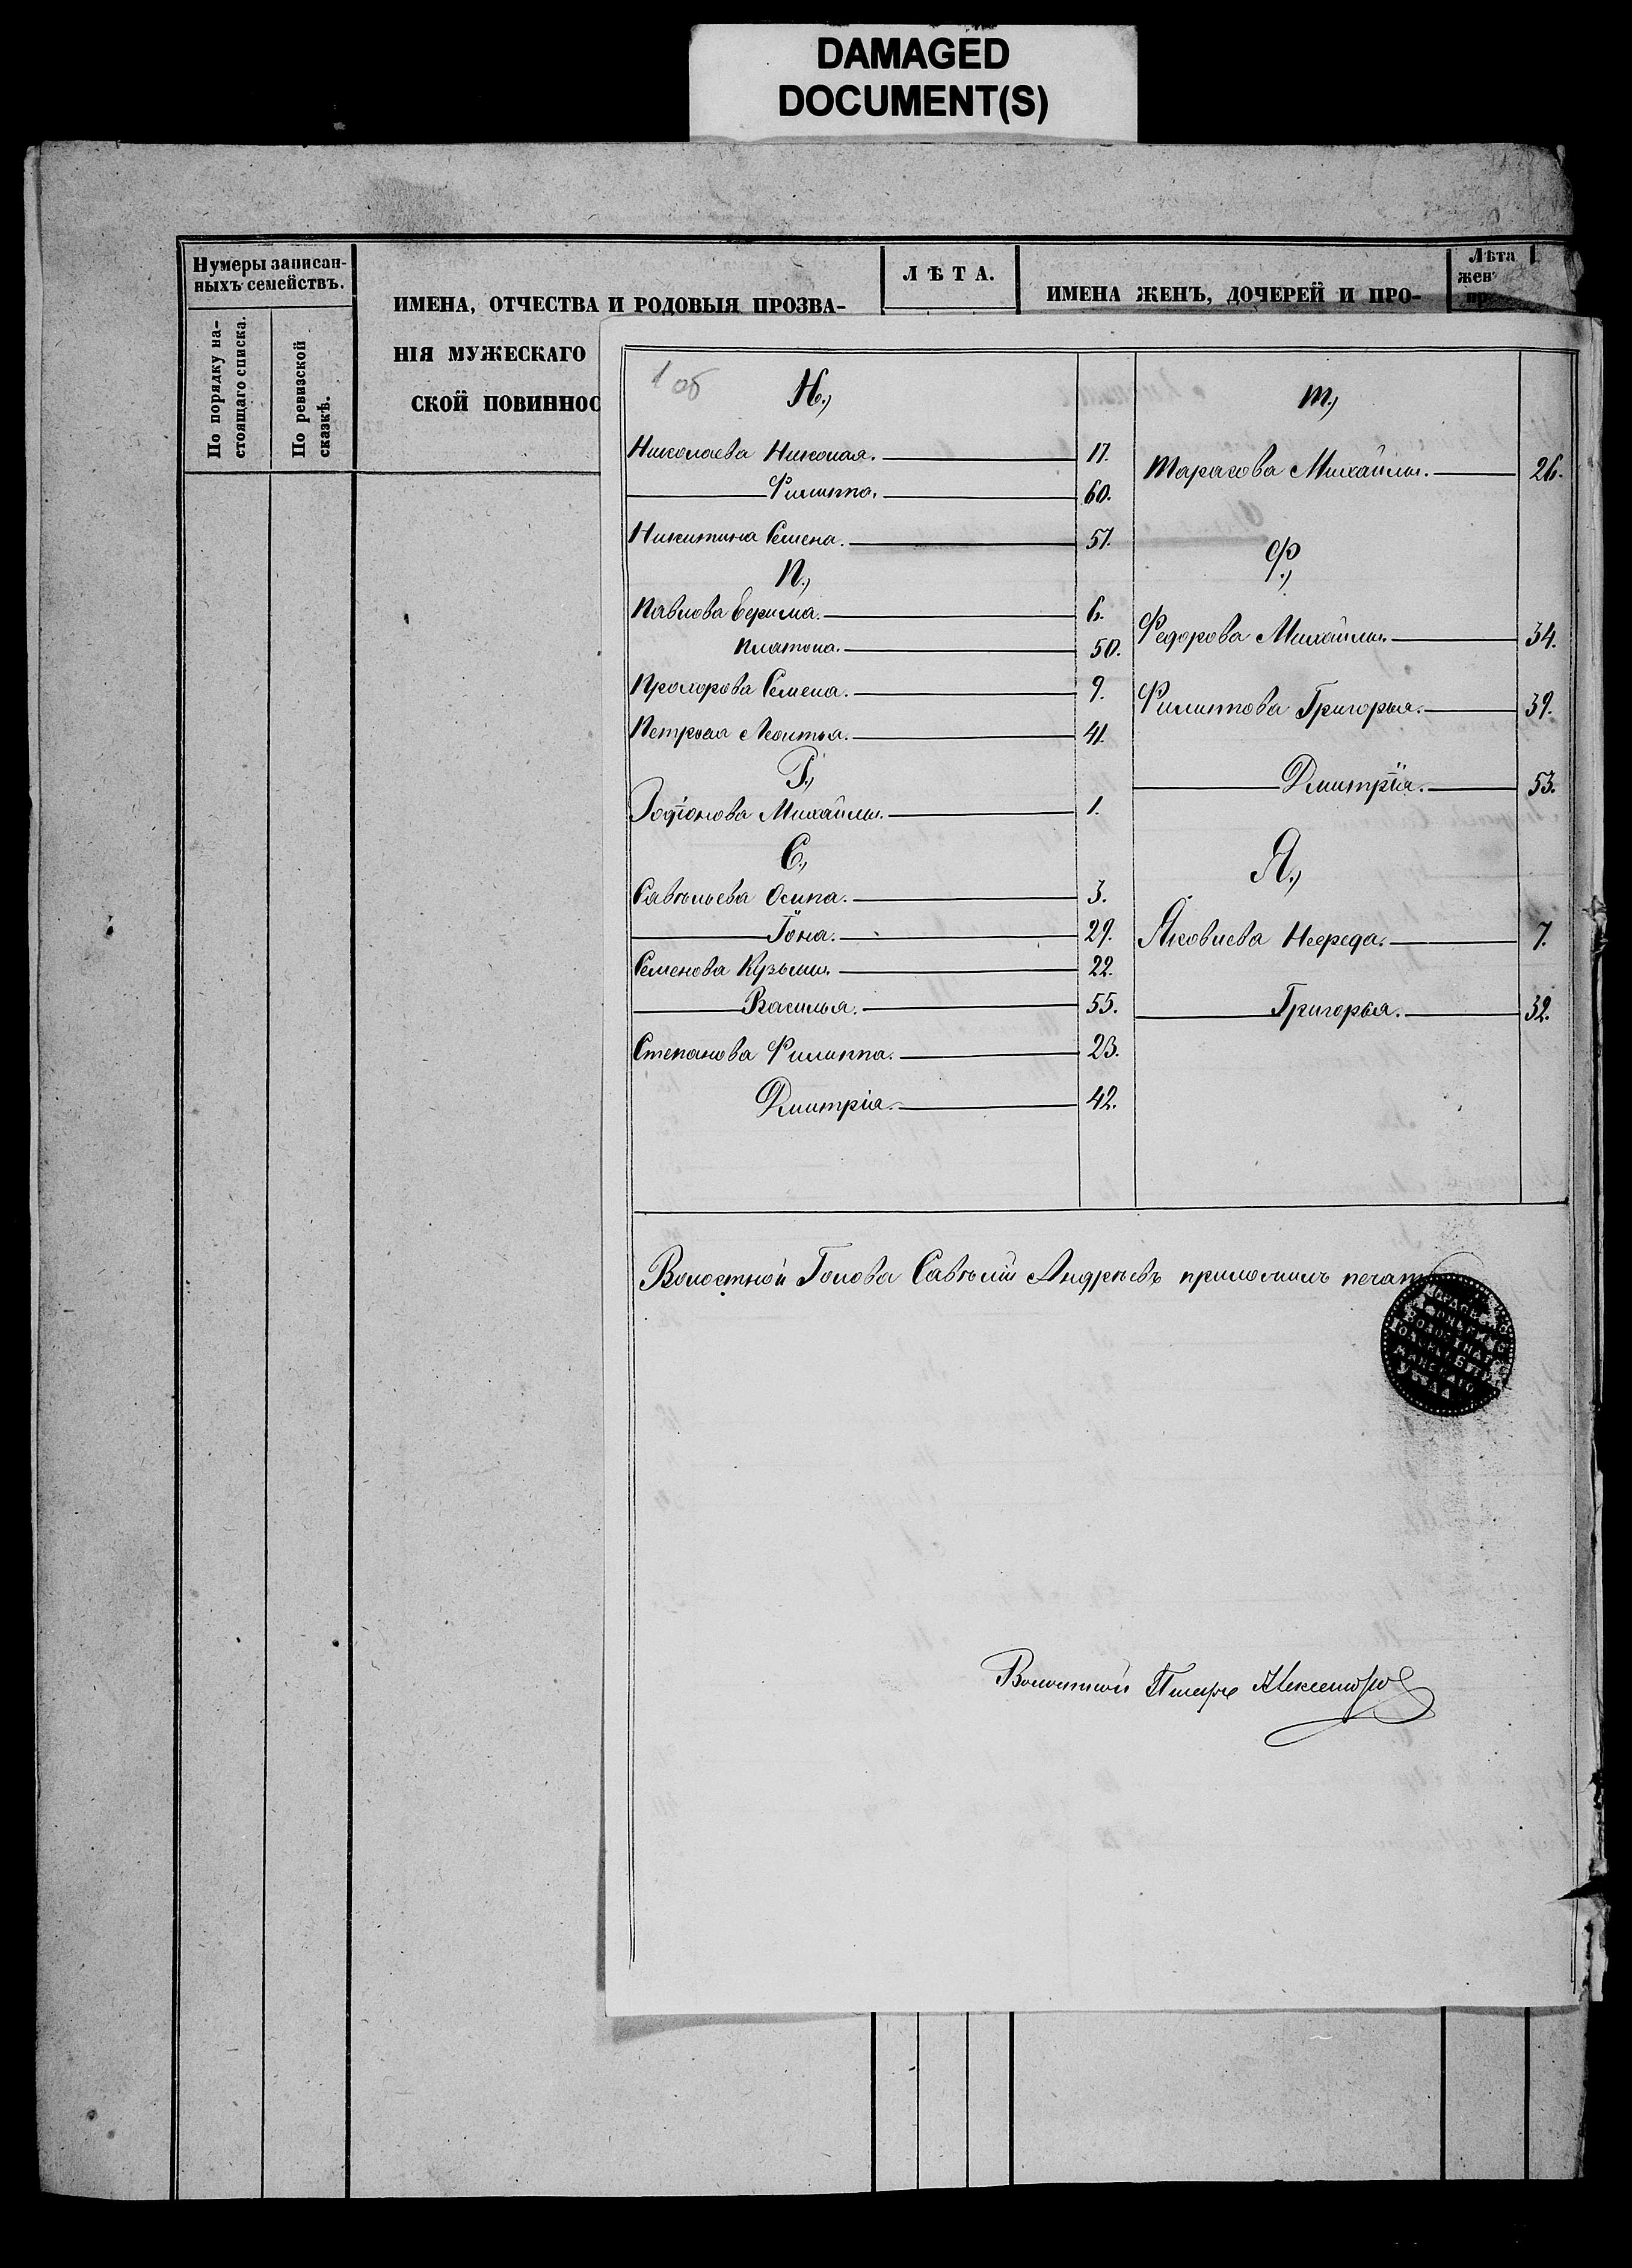 DAMAGED
DOCUMENT(S)
Нумеры записан-
ныхъ семействъ.
По порядку на-
стоящаго списка.
По ревизской
сказкѣ.
ИМЕНА, ОТЧЕСТВА И РОДОВЫЯ ПРОЗВА-
НІЯ МУЖЕСКАГО
СКОЙ ПОВИННОС
ЛѢТА.
ИМЕНА ЖЕНЪ, ДОЧЕРЕЙ И ПРО-
Лѣта
жен
1 об
Н.,
Николаева Николая. 17.
Филиппа. 60.
Никитина Семена. 57.
П.,
Павлова Ефима. 6.
Платона. 50.
Прохорова Семена. 9.
Петрова Леонтья. 41.
Р.,
Родіонова Михайлы. 1.
С.,
Савельева Осипа. 3.
Іона. 29.
Семенова Кузьмы. 22.
Василья. 55.
Степанова Филиппа. 23.
Дмитрія. 42.
Т.,
Тарасова Михайлы. 26.
Ф.,
Федорова Михайлы. 34.
Филиппова Григорья. 39.
Дмитрія. 53.
Я.,
Яковлева 7.
Григорья. 32.
Волостной Голова Савелій Андреевъ приложилъ печать
ВОЛОСТНАГО
ГОЛОВЫ БУГУЛЬ
МИНСКАГО
УѢЗДА
Волостной Писарь